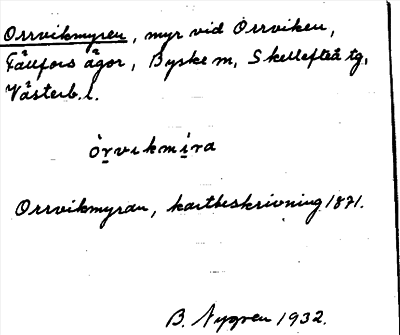 Orrvikmyren, myr vid Orrviken,
Fällfors ägor, Byske m, Skellefteå tg,
Västerb. l.
òrvikmìra
Orrvikmyran, kartbeskrivning 1871.
B. Nygren 1932.